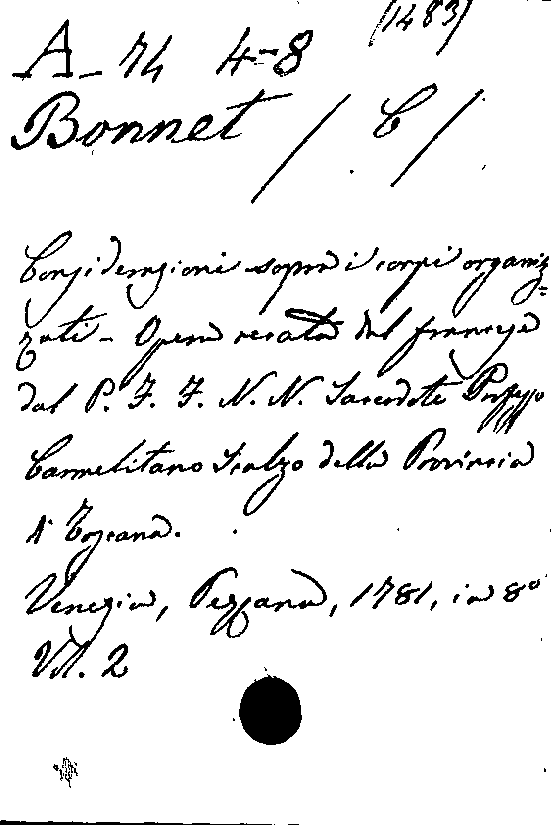 (1483)
A-74 4-8
Bonnet / C /
Considerazioni sopra i corpi organiz=
zati - Opera recata dal francese
dal P. F. F. N. N. Sacerdote Professo
Carmelitano Scalzo della Provincia
di Toscana.
Venezia, Pezzana, 1781, in 8º
Vol. 2